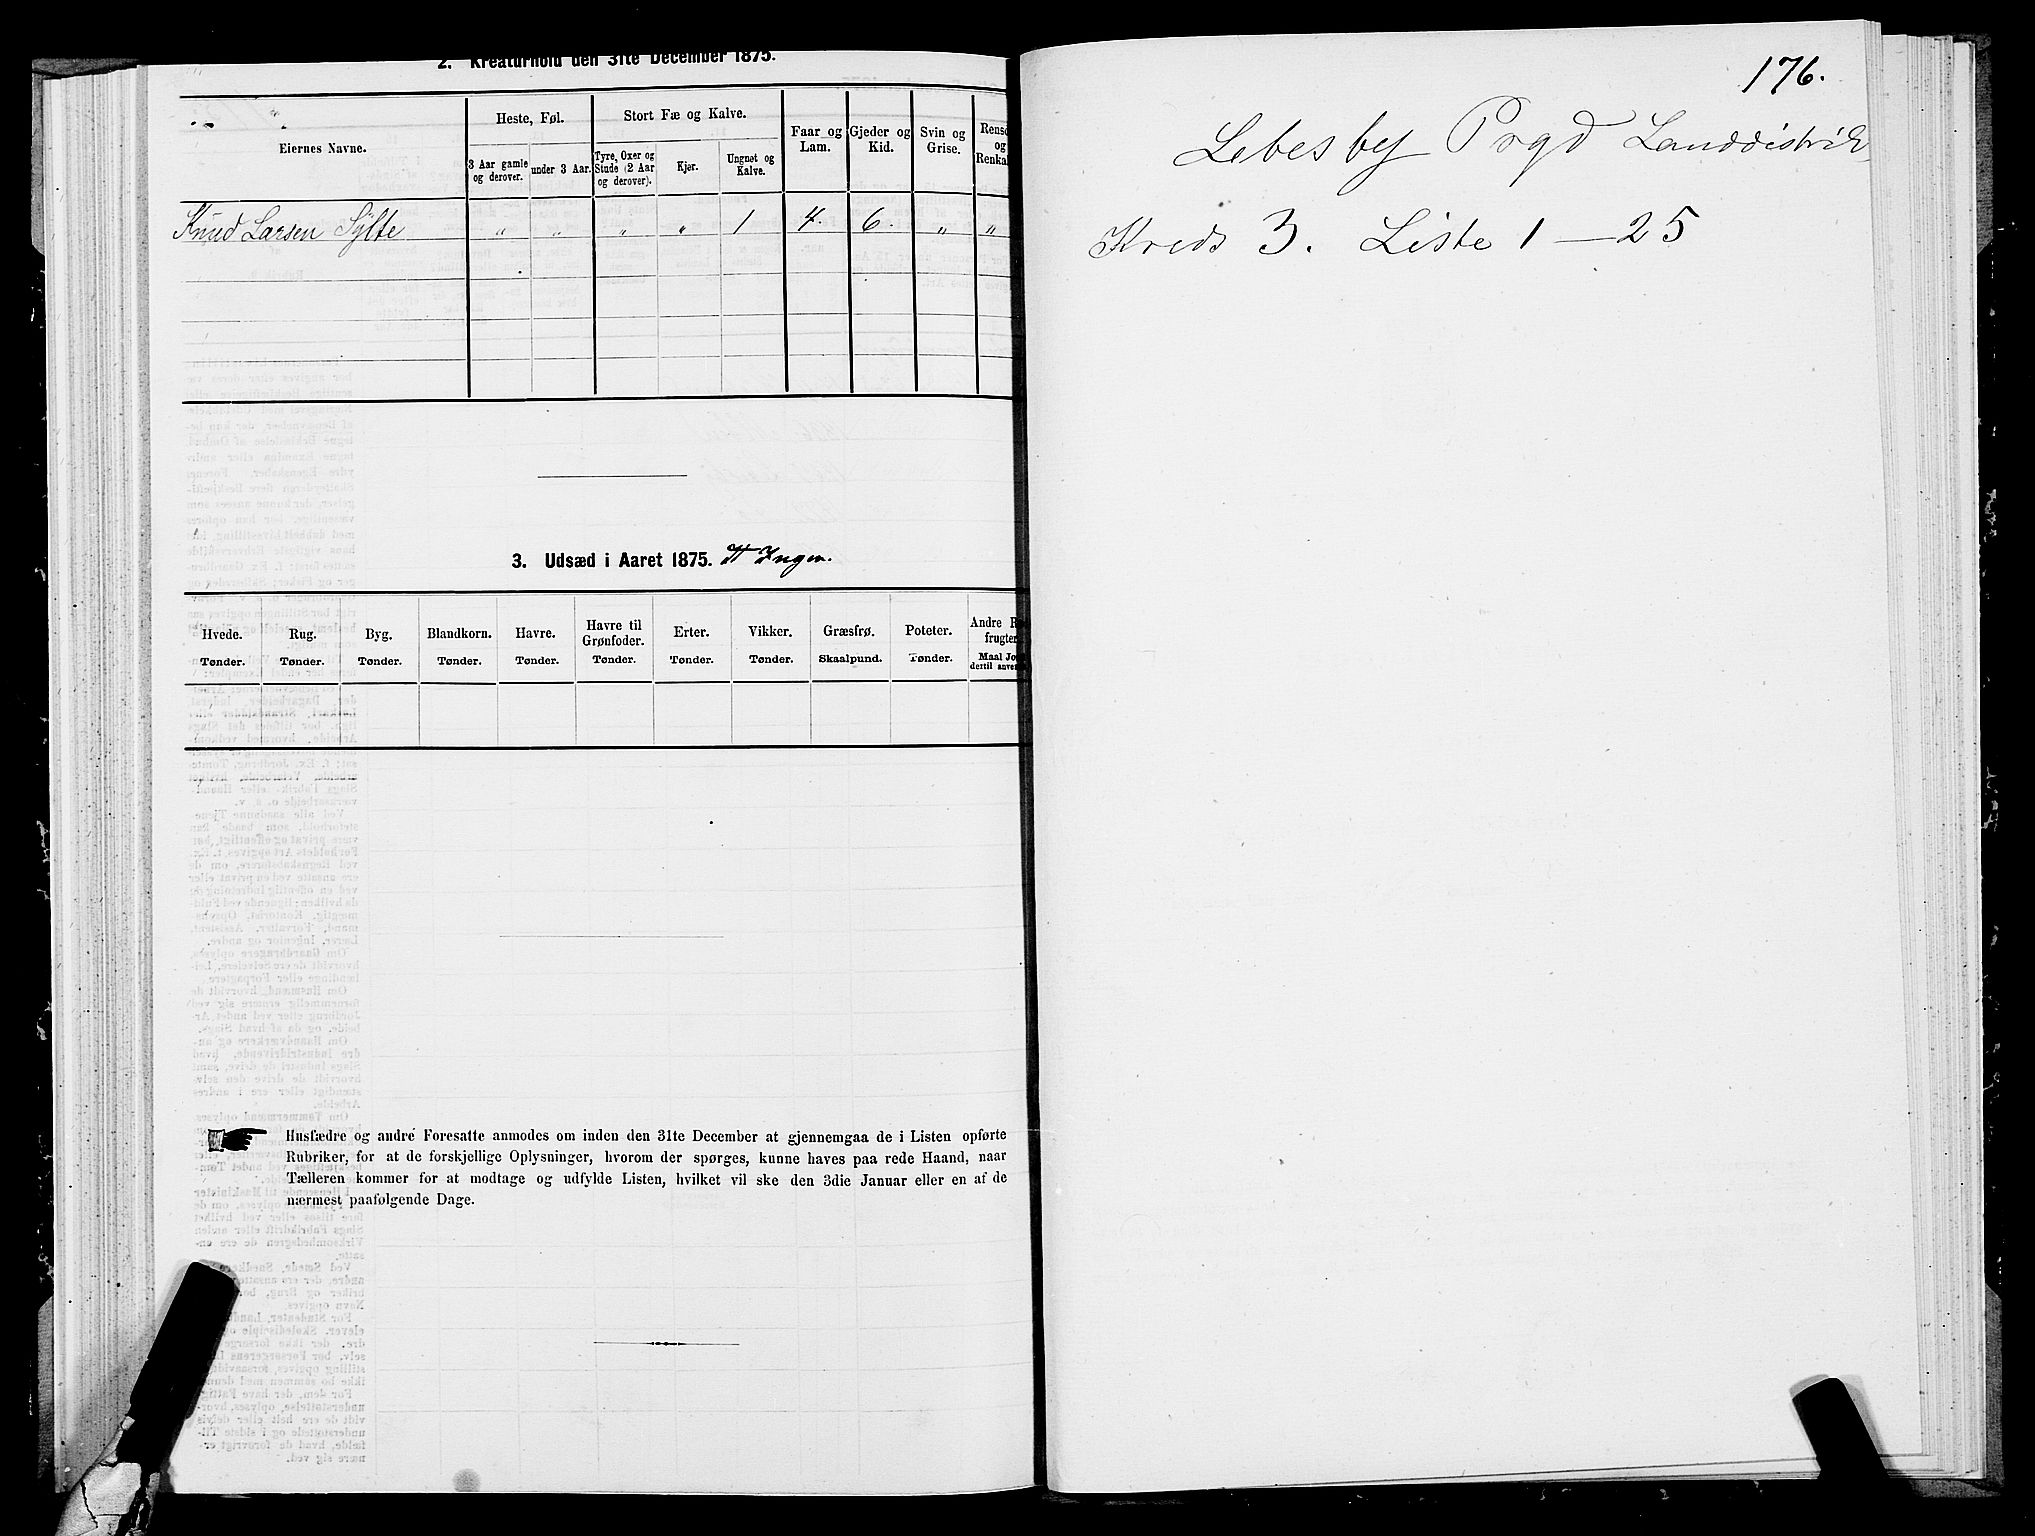 2. Kreaturhold den 31te December 1875.
Eiernes Navne.
Heste, Føl.
3 Aar gamle og derover.
under 3 Aar.
Stort Fæ og Kalve.
Tyre, Oxer og Stude (2 Aar og derover).
Kjør.
Ungnøt og Kalve.
Faar og Lam.
Gjeder og Kid.
Svin og Grise.
Rensd
og
Renkal
Knud Larsen Sylte " " " " 1 4. 6. " "
3. Udsæd i Aaret 1875. Ingen.
Hvede. Rug. Byg. Blandkorn. Havre. Havre til Grønfoder. Erter. Vikker. Græsfrø. Poteter. Andre R
frugter
Tønder. Tønder. Tønder. Tønder. Tønder. Tønder. Tønder. Tønder. Skaalpund. Tønder. Maal Jo
dertil anve
Husfædre og andre Foresatte anmodes om inden den 31te December at gjennemgaa de i Listen opførte
Rubriker, for at de forskjellige Oplysninger, hvorom der spørges, kunne haves paa rede Haand, naar
Tælleren kommer for at modtage og udfylde Listen, hvilket vil ske den 3die Januar eller en af de
nærmest paafølgende Dage.
176.
Lebesby Prgd Landdistrik
Kreds 3. Liste 1 — 25